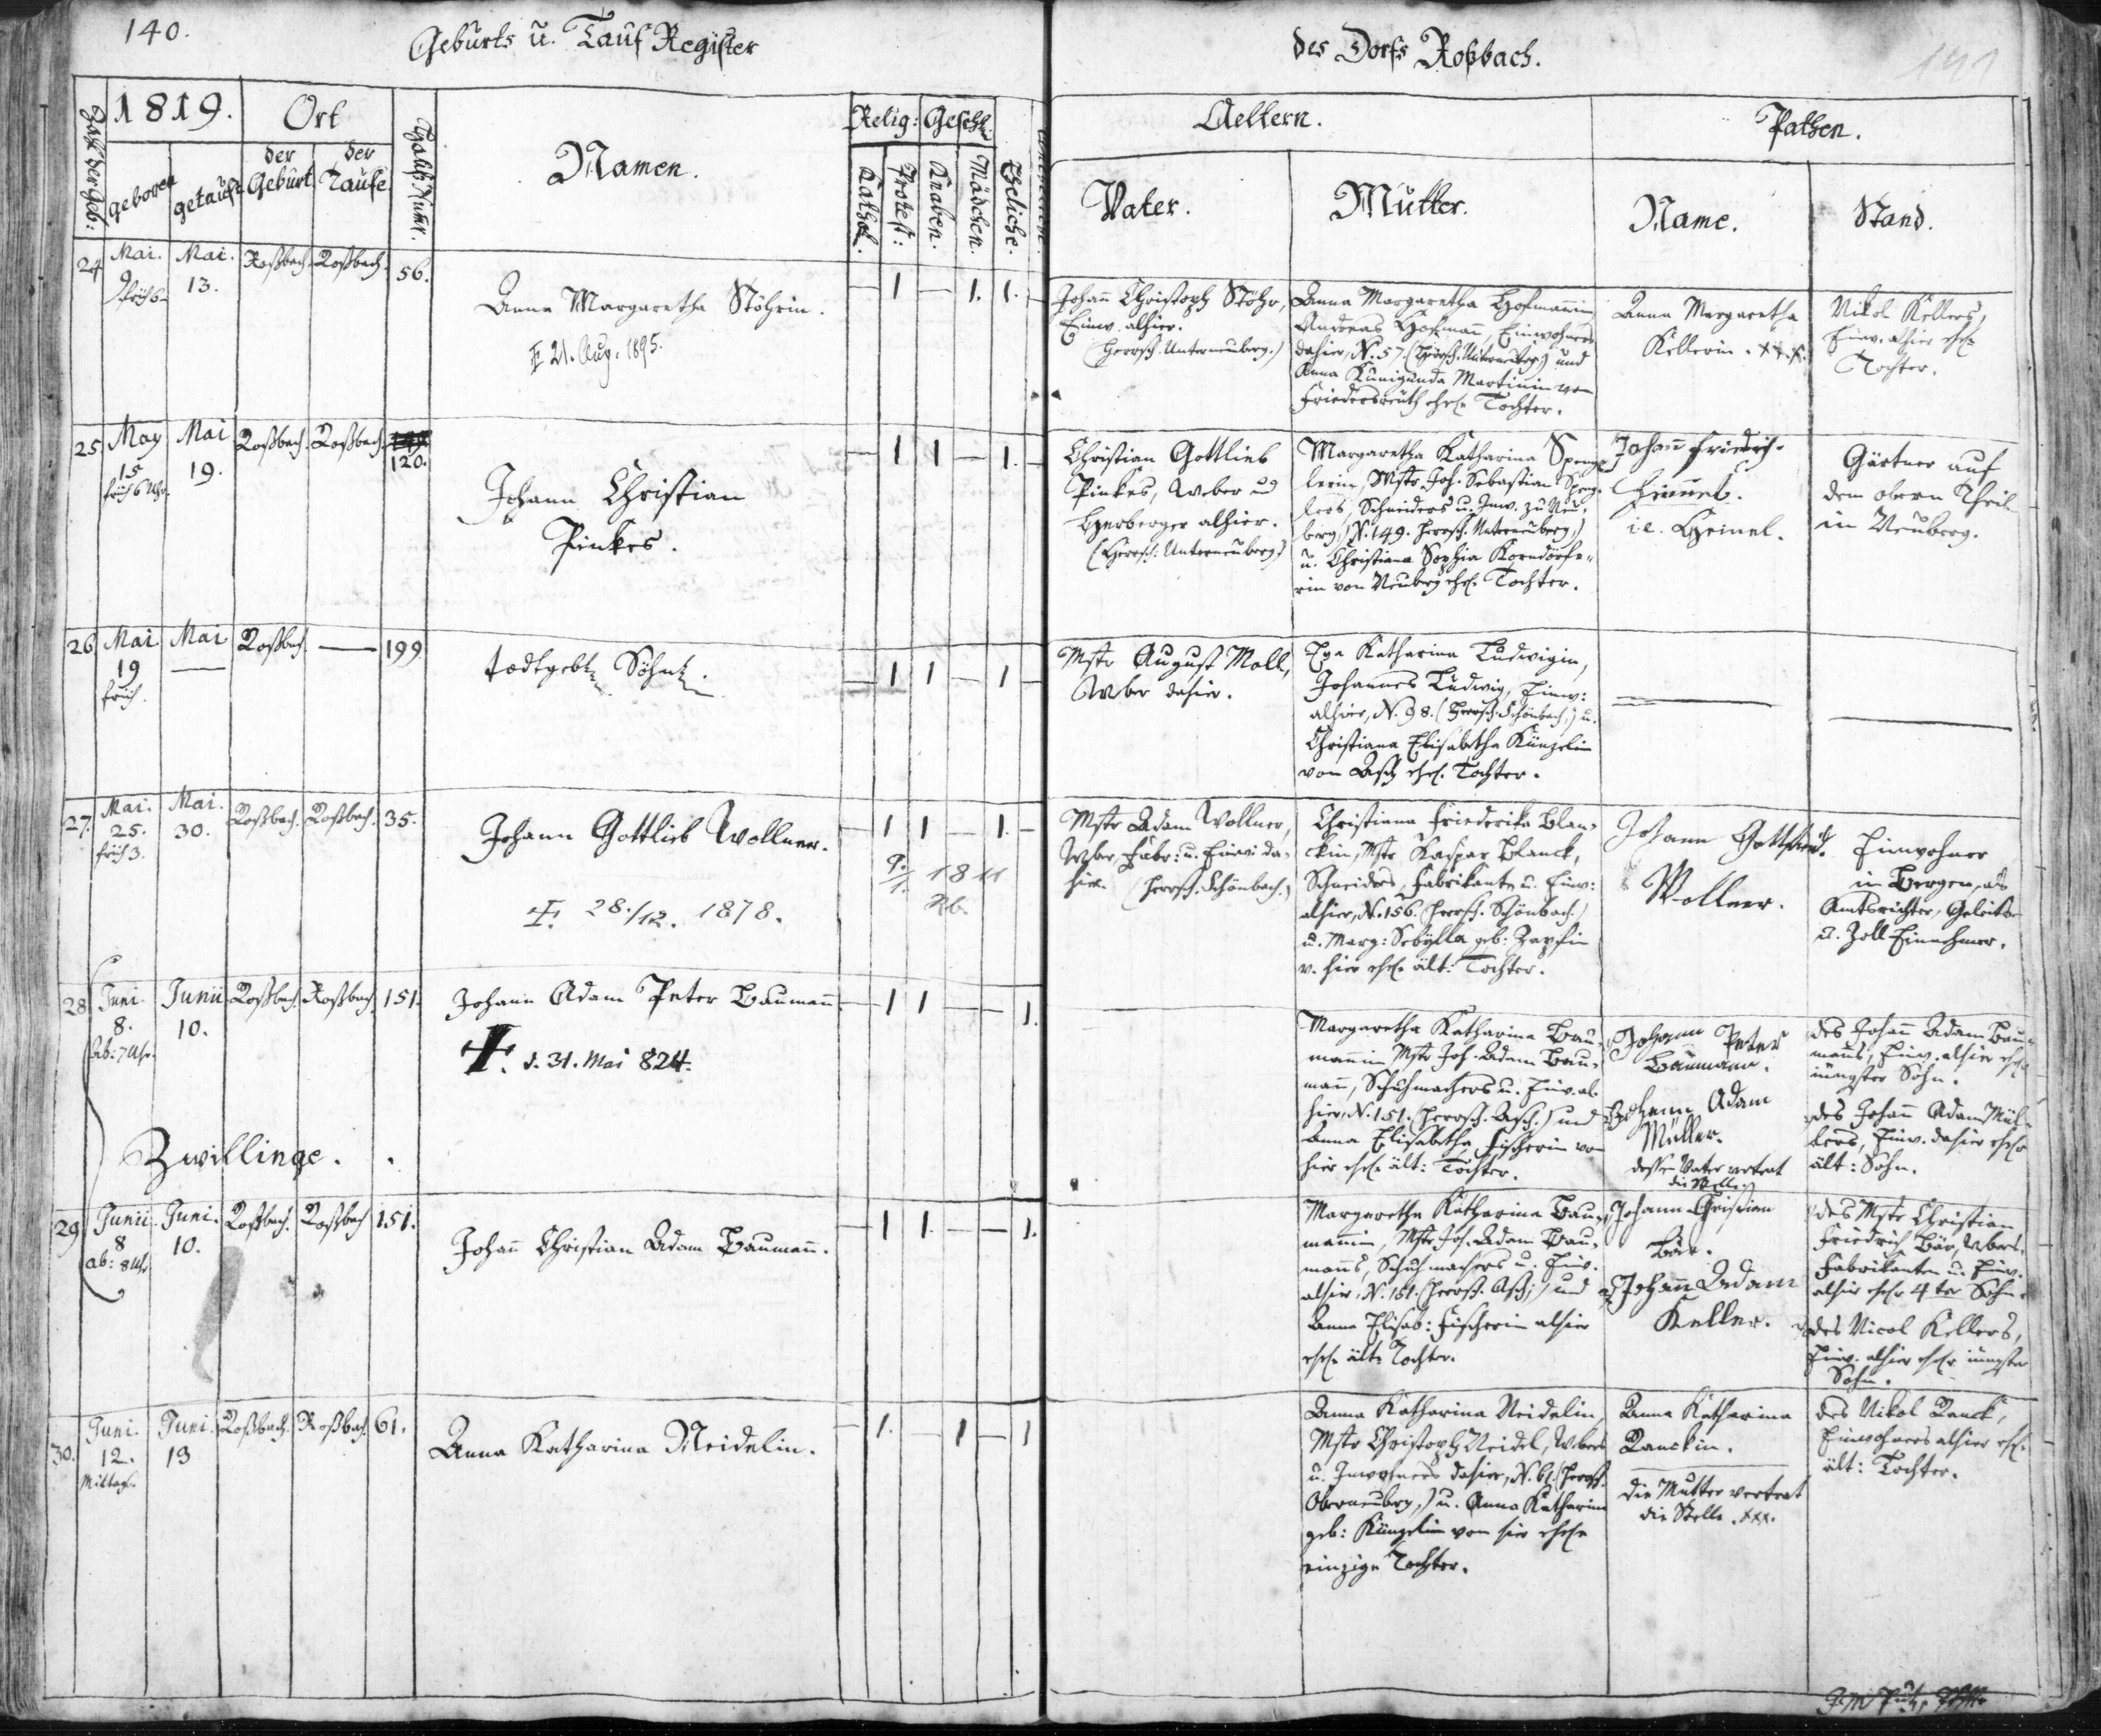 140.
Geburts u. Tauf Register
des Dorfs Roßbach.
141
Zahl der Geb:
1819.
geboren
getauft
Ort
der Geburt.
der Taufe.
Namen.
Relig:
Kathol.
Protest:
Geschl:
Knaben.
Mädchen.
Eheliche.
Aeltern.
Vater.
Mutter.
Pathen.
Name.
Stand.
24
Mai.
9
früh 6
Mai.
13.
Roßbach. Roßbach. 56.
Anna Margaretha Stöhrin.
21. Aug. 1895.
— 1 — 1. 1. —
Johann Christoph Stöhr,
Einw. alhier.
(Herrsch. Unterneuberg.)
Anna Margaretha Hofmannin
Andreas Hofmann, Einwohners
dahier, N. 57. (Herrsch. Unterneuberg) und
Anna Kunigunda Martinin von
Friedersreuth ehel. Tochter.
Anna Margaretha
Kellerin. xxx.
Nikol Kellers,
Einw. alhier ehel.
Tochter.
25.
May
15
früh 6 Uhr.
Mai
19.
Roßbach. Roßbach.
120.
Johann Christian
Pinkes.
— 1 1 — 1. —
Christian Gottlieb
Pinkes, Weber und
Herberger alhier.
(Herrsch: Unterneuberg.)
Margaretha Katharina Speng-
lerin, Mstr. Joh. Sebastian Speng-
lers, Schneiders u. Inw. zu Neu-
berg, N. 149. Herrsch. Unterneuberg,)
u. Christiana Sophia Korndörfe-
rin von Neuberg ehel. Tochter.
Johann Friedrich
i.e. Heinel.
Gärtner auf
dem obern Theil
in Neuberg.
26
Mai
19
früh.
Mai
—
Roßbach. — 199
todtgeb. Söhnl.
— 1 1 — 1 —
Mstr August Moll,
Weber dahier.
Eva Katharina Ludwigin,
Johannes Ludwig, Einw:
alhier, N. 98. (Herrsch. Schönbach,) u.
Christiana Elisabetha Künzelin
von Asch ehel. Tochter.
27.
Mai.
25.
früh 3.
Mai.
30.
Roßbach. Roßbach. 35.
Johann Gottlieb Wollner.
28./12. 1878.
— 1 1 — 1. —
Mstr Adam Wollner,
Weber, Fabr: u. Einw. da-
hier. (Herrsch. Schönbach.)
Christiana Friederika Blan-
ckin, Mstr Kaspar Blanck,
Schneiders, Fabrikants u. Einw:
alhier, N. 156. (Herrsch. Schönbach.)
u. Marg: Sebylla geb: Zapfin
v. hier ehel. ält: Tochter.
Johann Gottfried
Wollner.
Einwohner
in Bergen, als
Amtsrichter, Geleits-
u. Zoll Einnehmer.
28
Juni.
8.
Ab: 7 Uhr.
Junii
10.
Roßbach. Roßbach. 151.
Johann Adam Peter Baumann
d. 31. Mai 824.
— 1 1 — 1.
Margaretha Katharina Bau-
mannin Mstr Joh. Adam Bau-
mann, Schuhmachers u. Einw. al-
hier, N. 151. (Herrsch. Asch.) und
Anna Elisabetha Fischerin von
hier ehel. ält: Tochter.
Johann Peter
Baumann.
Johann Adam
Müller.
dessen Vater vertrat
die Stelle.
des Johann Adam Bau-
manns, Einw. alhier ehel.
jüngster Sohn.
des Johann Adam Mül-
lers, Einw. dahier ehel.
ält: Sohn.
Zwillinge.
29
Junii
8
ab: 8 Uhr
Juni.
10.
Roßbach. Roßbach 151.
Johann Christian Adam Baumann.
— 1 1. — 1.
Margaretha Katharina Bau-
mannin, Mstr Joh. Adam Bau-
manns, Schuhmachers u. Einw.
alhier, N. 151. (Herrsch. Asch,) und
Anna Elisab: Fischerin alhier
ehel. ält. Tochter.
Johann Christian
Bär.
Johann Adam
Keller.
des Mstr Christian
Friedrich Bär, Webers,
Fabrikanten u. Einw.
alhier ehel. 4ter Sohn.
des Nicol Kellers,
Einw. alhier ehel. jüngster
Sohn.
30.
Juni.
12.
Mittags.
Juni.
13
Roßbach. Roßbach. 61.
Anna Katharina Neidelin.
— 1. — 1 — 1
Anna Katharina Neidelin,
Mstr Christoph Neidel, Webers
u. Inwohners dahier, N. 61. (Herrsch.
Oberneuberg,) u. Anna Katharina
geb: Künzelin von hier ehel.
einzige Tochter.
Anna Katharina
Ranckin.
die Mutter vertrat
die Stelle. xxx.
des Nikol Ranck,
Einwohners alhier ehel.
ält: Tochter.